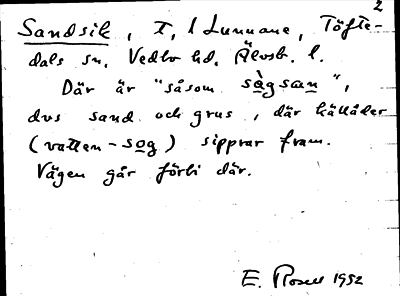 2
Sandsik, T, l Lunnane, Töfte-
dals sn, Vedbo hd, Älvsb. l.
Där är "såsom sàgsan",
dvs sand och grus, där källåder
(vatten-sog) sipprar fram.
Vägen går förbi där.
E. Rosell 1952